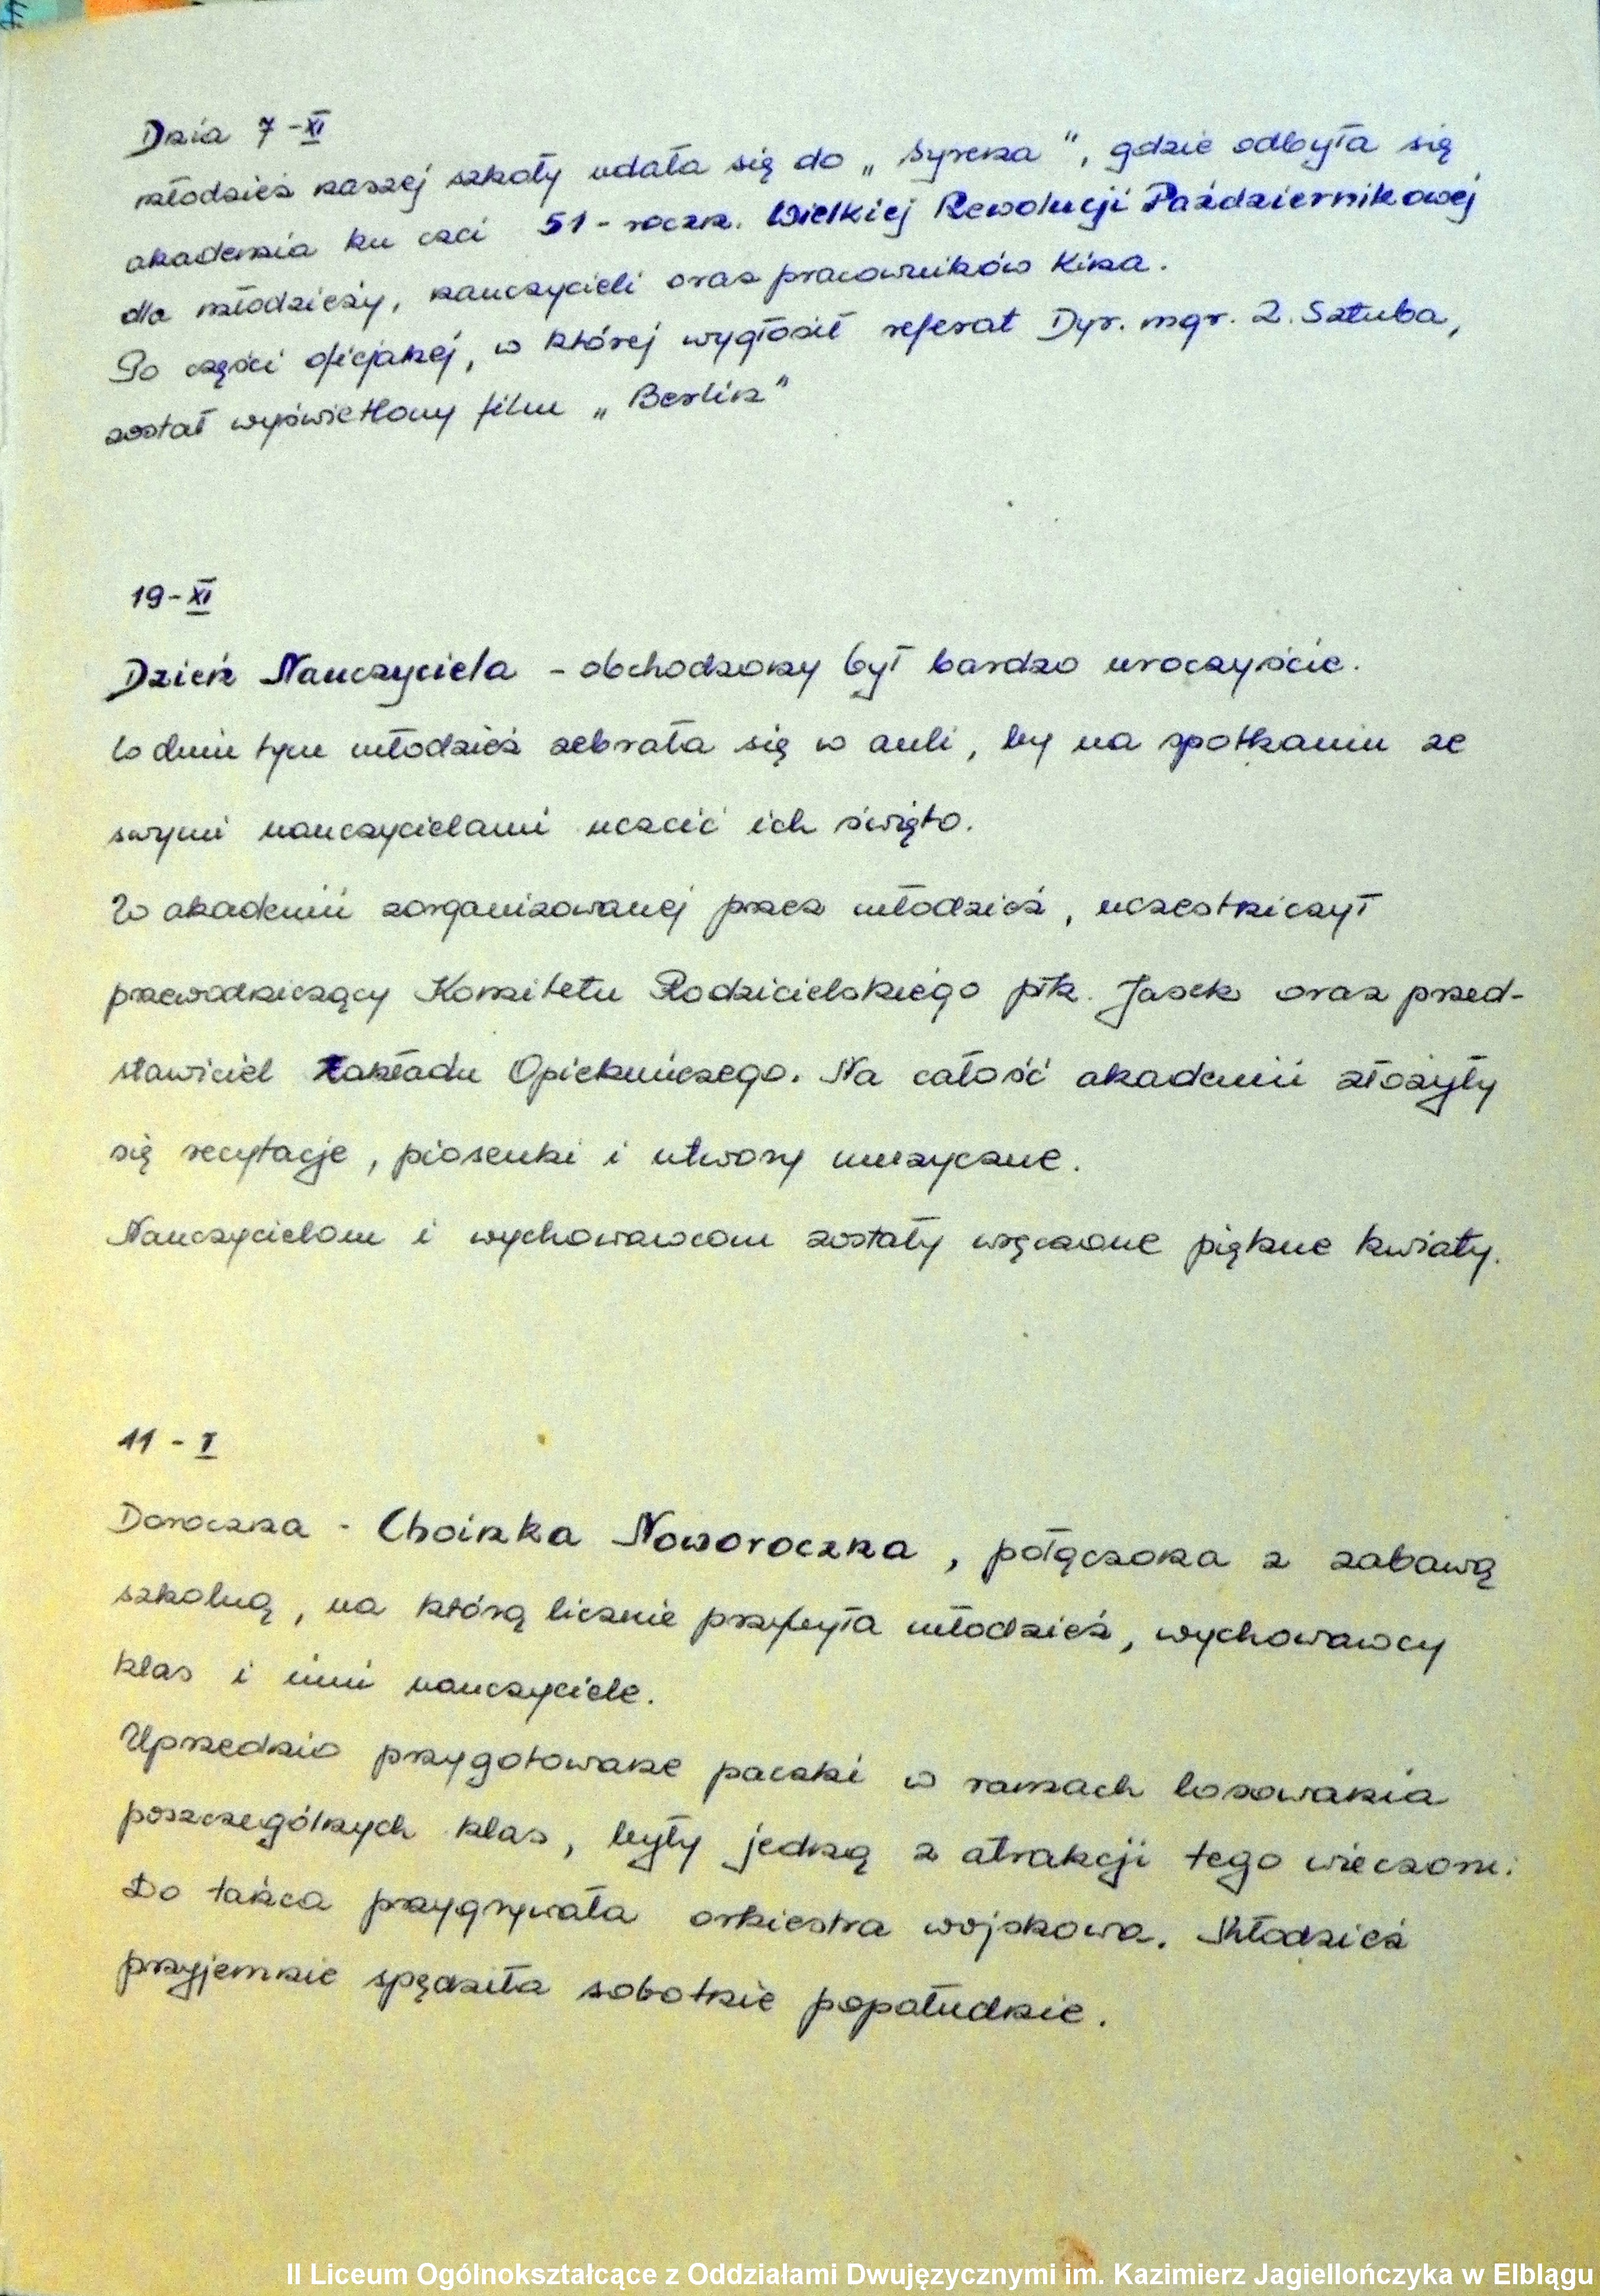 Dnia 7-XI
młodzież naszej szkoły udała się do „Syrena", gdzie odbyła się
akademia ku czci 51-roczn. Wielkiej Rewolucji Październikowej
dla młodzieży, nauczycieli oraz pracowników kina.
Po części oficjalnej, w której wygłosił referat Dyr. mgr. Z. Sztuba,
został wyświetlony film „Berlin"
19-XI
Dzień Nauczyciela - obchodzony był bardzo uroczyście.
W dniu tym młodzież zebrała się w auli, by na spotkaniu ze
swymi nauczycielami uczcić ich święto.
W akademii zorganizowanej przez młodzież, uczestniczył
przewodniczący Komitetu Rodzicielskiego płk. Jasek oraz przed-
stawiciel Zakładu Opiekuńczego. Na całość akademii złożyły
się recytacje, piosenki i utwory muzyczne.
Nauczycielom i wychowawcom zostały wręczone piękne kwiaty.
11 - I
Doroczna - Choinka Noworoczna, połączona z zabawą
szkolną, na którą licznie przybyła młodzież, wychowawcy
klas i inni nauczyciele.
Uprzednio przygotowane paczki w ramach losowania
poszczególnych klas, były jedną z atrakcji tego wieczoru.
Do tańca przygrywała orkiestra wojskowa. Młodzież
przyjemnie spędziła sobotnie popołudnie.
II Liceum Ogólnokształcące z Oddziałami Dwujęzycznymi im. Kazimierz Jagiellończyka w Elblągu